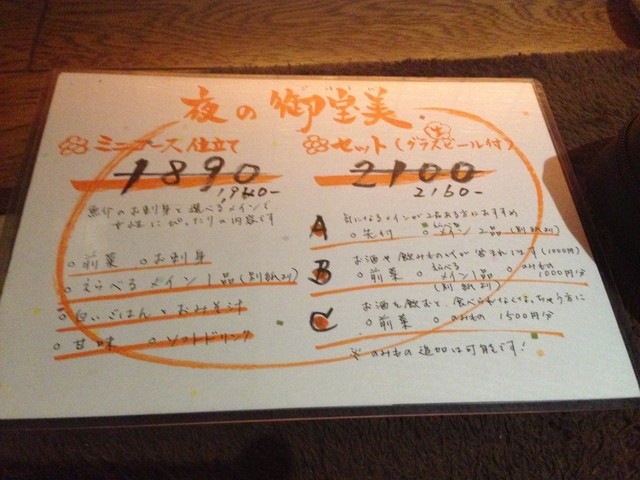 夜の御堂美
ミニコース仕立て
1890
1940-
のお刺身と選べるメインで
女性にぴったりの内容です
○前菜 ○お刺身
○えらべるメイン1品(別紙より)
○白いごはん、おみそ汁
○甘味 ○ソフトドリンク
セット(グラスビール付)
生
2100
2160-
A 気になるメインが2品ある方におすすめ
○先付 ○えらべるメイン2品(別紙より)
B お酒や飲みものが含まれます(1000円)
○前菜 ○えらべるメイン1品 ○のみもの1000円分
(別紙より)
C お酒を飲むと、食べられなくなっちゃう方に
○前菜 ○のみもの1500円分
※のみもの追加は可能です!